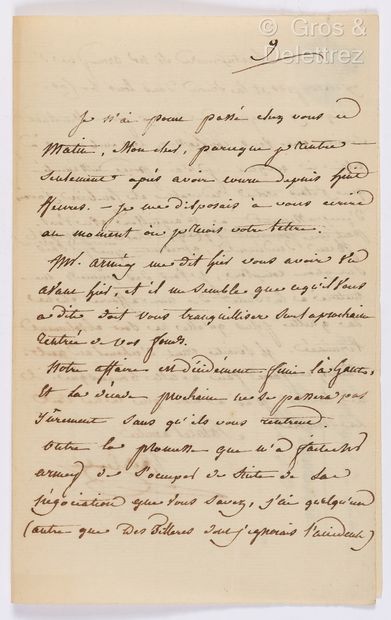 © Gros &
Delettrez
9
Je n'ai point passé chez vous ce
Matin, Mon cher, parceque je rentre
seulement après avoir couru depuis huit
heures. — Je me disposais a vous écrire
au moment où je reçois votre lettre.
Mr. arméy me dit hier vous avoir vu
avant hier, et il me semble que ce qu'il vous
a dit doit vous tranquilliser sur la prochaine
rentrée de vos fonds.
Notre affaire est décidément finie là
Et la décade prochaine ne se passera pas
sûrement sans qu'ils vous rentrent.
Outre la promesse que m'a faite Mr
arméy de s'occuper de suite de la
négociation que vous savez, j'ai quelqu'un
(autre que Des Billeres dont j'ignorais l'accident)